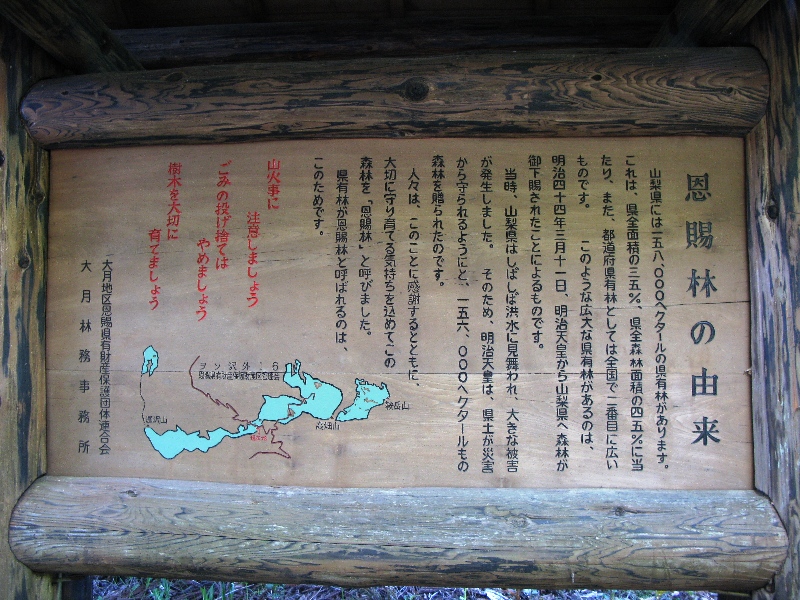 恩賜林の由来
山梨県には一五八、〇〇〇ヘクタールの県有林があります。
これは、県全面積の三五％、県全森林面積の四五％に当
たり、また、都道府県有林としては全国で二番目に広い
ものです。　このような広大な県有林があるのは、
明治四十四年三月十一日、明治天皇から山梨県へ森林が
御下賜されたことによるものです。
当時、山梨県はしばしば洪水に見舞われ、大きな被害
が発生しました。　そのため、明治天皇は、県土が災害
から守られるようにと、一五六、〇〇〇ヘクタールもの
森林を贈られたのです。
人々は、このことに感謝するとともに、
大切に守り育てる気持ちを込めてこの
森林を、「恩賜林」と呼びました。
県有林が恩賜林と呼ばれるのは、
このためです。
山火事に
注意しましょう
ごみの投げ捨ては
やめましょう
樹木を大切に
育てましょう
大月地区恩賜県有財産保護団体連合会
大月林務事務所
高畑山